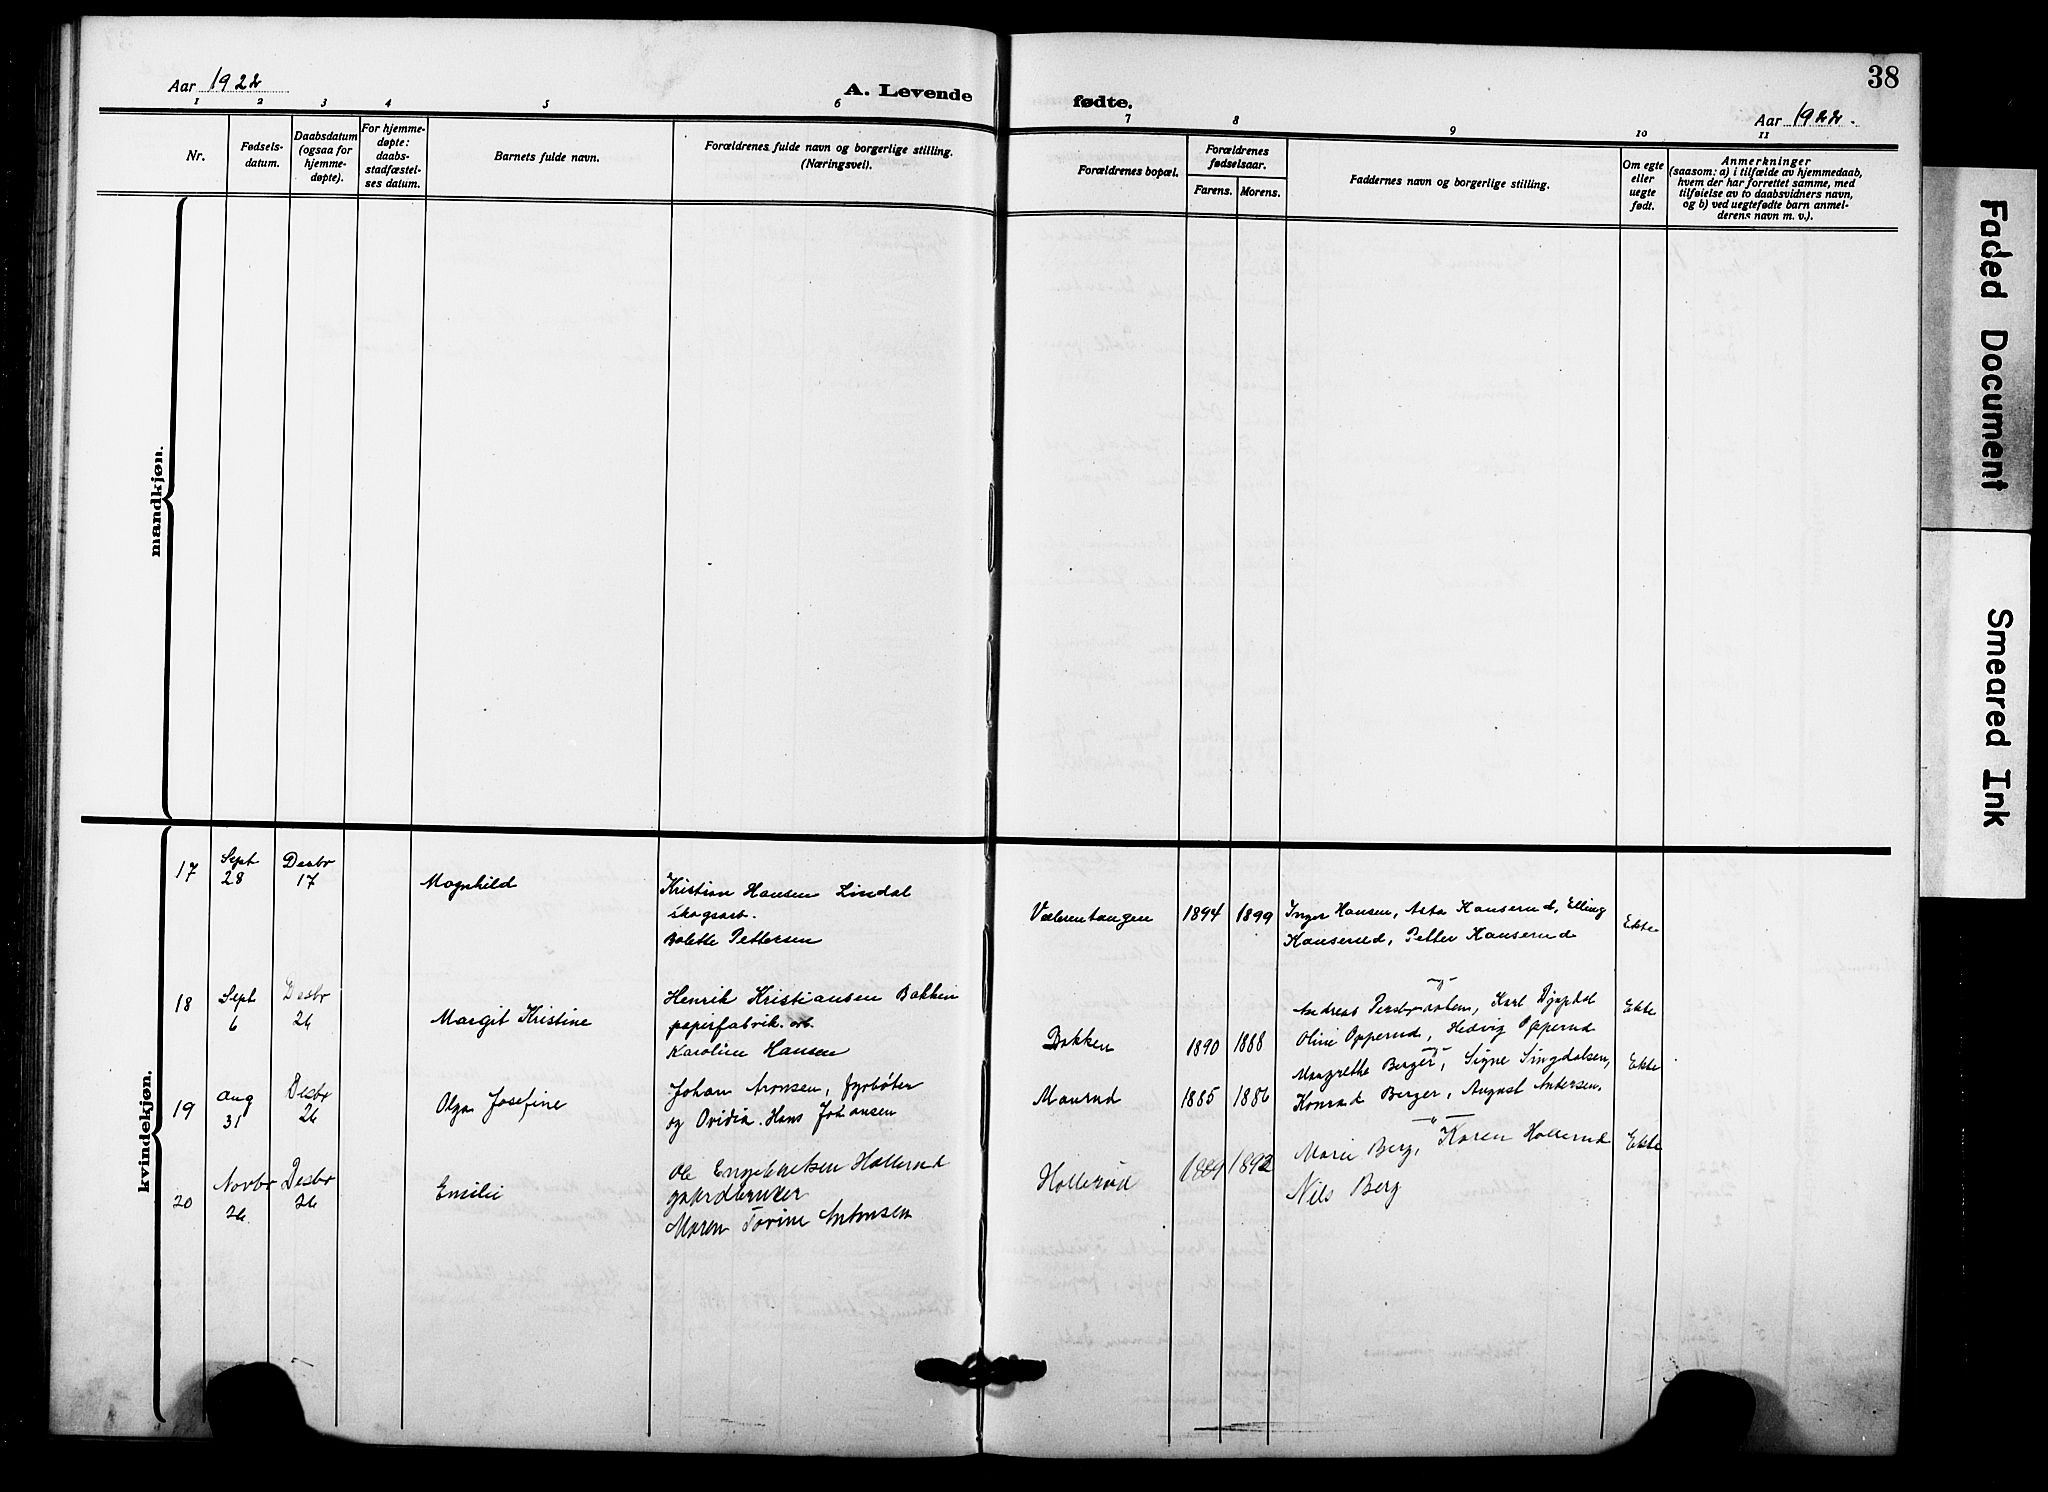 38
Aar 1922
A. Levende
fødte.
Aar 1922.
1 2 3 4 5 6 7 8 9 10 11
Nr.
Fødsels-
datum.
Daabsdatum
(ogsaa for
hjemme-
døpte).
For hjemme-
døpte:
daabs-
stadfæstel-
ses datum.
Barnets fulde navn.
Forældrenes fulde navn og borgerlige stilling.
(Næringsvei).
Forældrenes bopæl.
Forældrenes
fødselsaar.
Farens. Morens.
Faddernes navn og borgerlige stilling.
Om egte
eller
uegte
født.
Anmerkninger
(saasom: a) i tilfælde av hjemmedaab,
hvem der har forrettet samme, med
tilføielse av to daabsvidners navn,
og b) ved uegtefødte barn anmel-
derens navn m. v.).
mandkjøn.
kvindekjøn.
17
Sept
28
Desbr
17
Magnhild
Kristian Hansen Lindal
skogsarb.
Bolette Pettersen
Vælerentangen
1894 1899
Inger Hansen, Asta Kanserud, Elling
Kanserud, Petter Kanserud
Ekte
18
Sept
6
Desbr
26
Margit Kristine
Henrik Kristiansen Bakken
papirfabrik. arb.
Karoline Hansen
Bakken
1890 1888
Andreas Karl
Oline Opperud, Hedvig Opperud
Ekte
19
Aug
31
Desbr
26
Olga Josefine
Johan Aronsen, fyrbøter
og Ovidia. Hans Johansen
Maurud
1885 1886
Margrethe Berger, Signe Singdalsen,
Konrad Berger, August Andersen.
Ekte
20
Novbr
26
Desbr
26
Emilie
Ole Engebretsen Hollerud
gaardbruker
Maren Torine Antonsen
Hollerud
1889 1892
Marie Berg, Karen Hollerud
Nils Berg
Ekte
Faded Document
Smeared Ink